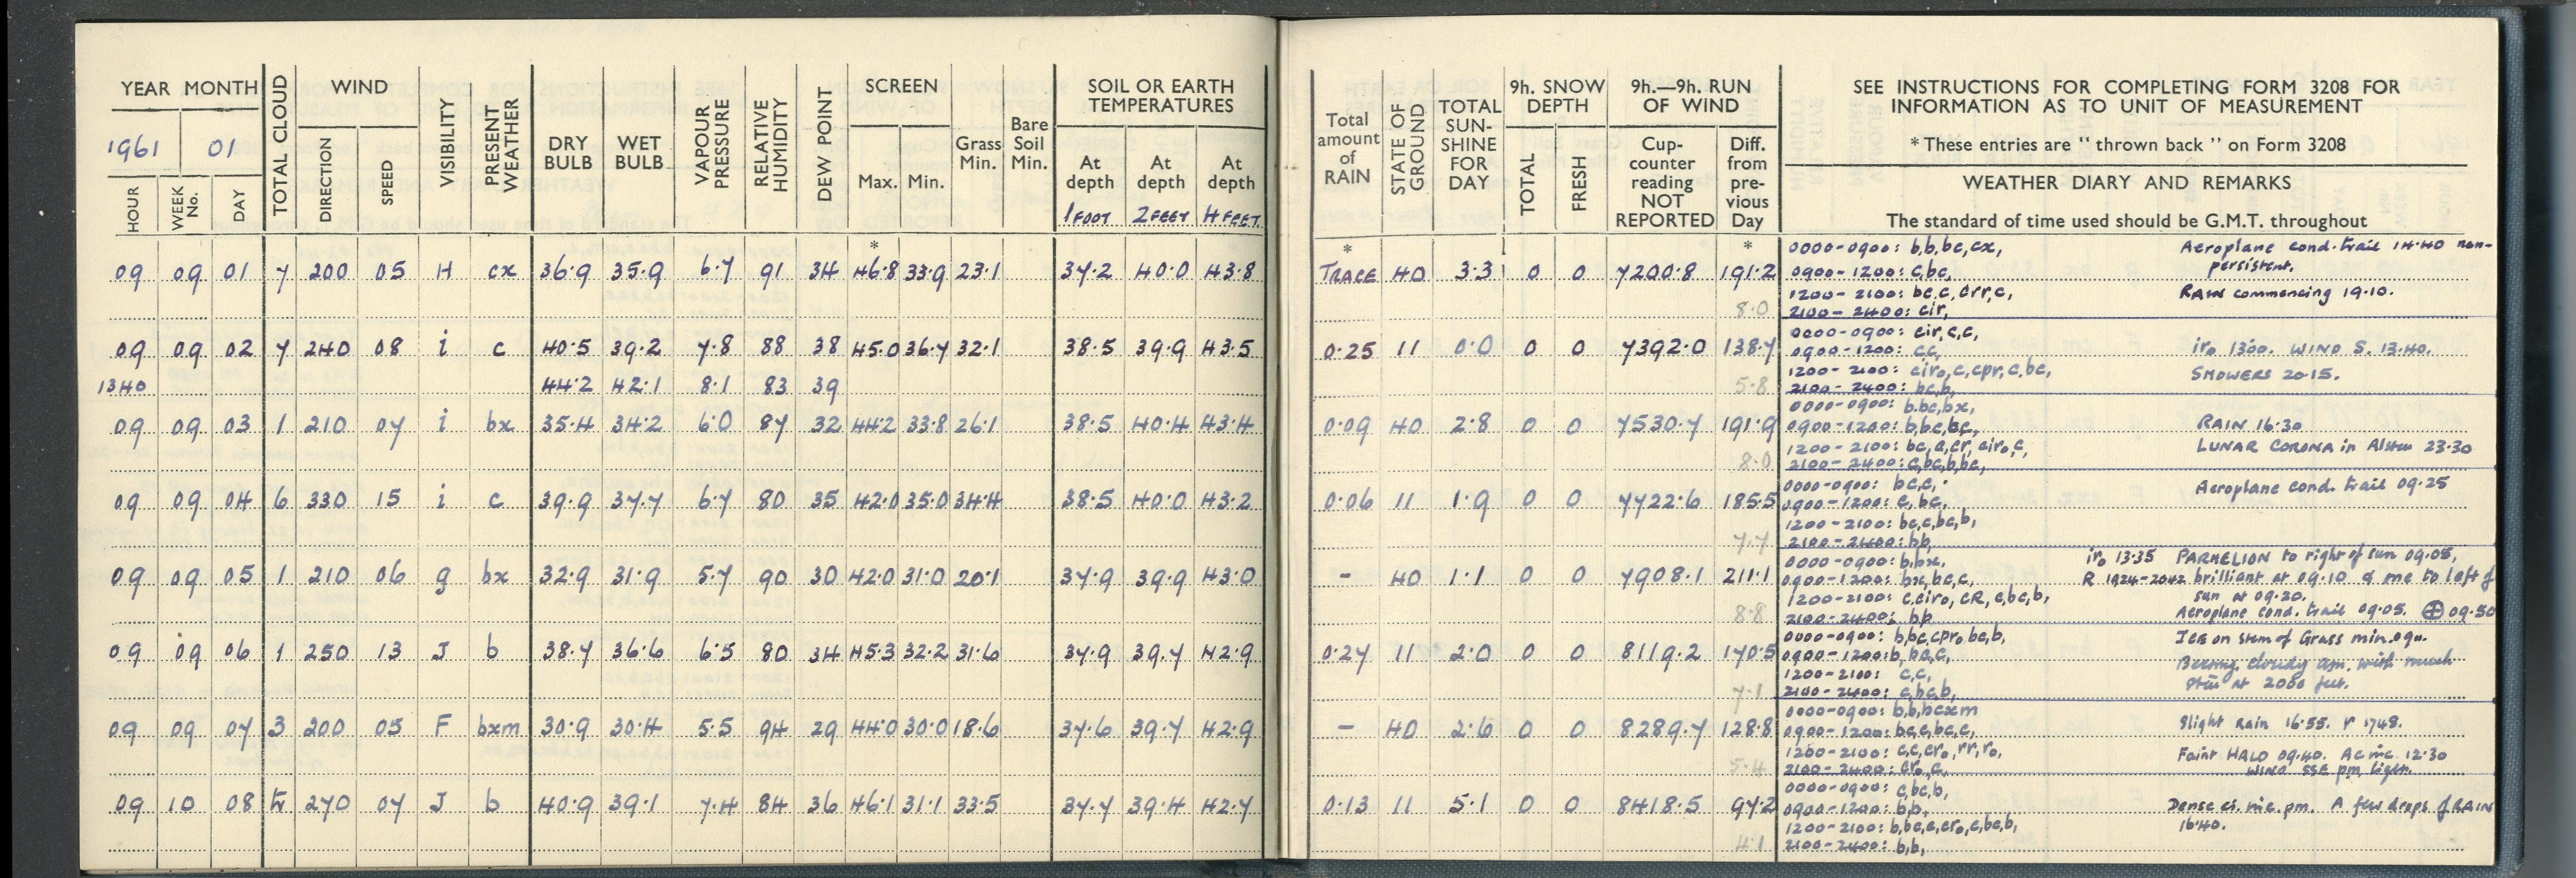 YEAR MONTH
1961 01
HOUR
WEEK No.
DAY
TOTAL CLOUD
WIND
DIRECTION
SPEED
VISIBILITY
PRESENT WEATHER
DRY BULB
WET BULB
VAPOUR PRESSURE
RELATIVE HUMIDITY
DEW POINT
SCREEN
Max.
Min.
Grass Min.
Bare Soil Min.
SOIL OR EARTH TEMPERATURES
At depth 1 FOOT
At depth 2 FEET
At depth 4 FEET
*
09 09 01 7 200 05 H cx 36·9 35·9 6·7 91 34 46·8 33·9 23·1 37·2 40·0 43·8
09 09 02 7 240 08 i c 40·5 39·2 7·8 88 38 45·0 36·7 32·1 38·5 39·9 43·5
1340 44·2 42·1 8·1 83 39
09 09 03 1 210 07 i bx 35·4 34·2 6·0 87 32 44·2 33·8 26·1 38·5 40·4 43·4
09 09 04 6 330 15 i c 39·9 37·7 6·7 80 35 42·0 35·0 34·4 38·5 40·0 43·2
09 09 05 1 210 06 g bx 32·9 31·9 5·7 90 30 42·0 31·0 20·1 37·9 39·9 43·0
09 09 06 1 250 13 J b 38·7 36·6 6·5 80 34 45·3 32·2 31·6 37·9 39·7 42·9
09 09 07 3 200 05 F bxm 30·9 30·4 5·5 94 29 44·0 30·0 18·6 37·6 39·7 42·9
09 10 08 270 07 J b 40·9 39·1 7·4 84 36 46·1 31·1 33·5 37·7 39·4 42·7
Total amount of RAIN
STATE OF GROUND
TOTAL SUN-SHINE FOR DAY
9h. SNOW DEPTH
TOTAL
FRESH
9h.—9h. RUN OF WIND
Cup-counter reading NOT REPORTED
Diff. from pre-vious Day
SEE INSTRUCTIONS FOR COMPLETING FORM 3208 FOR
INFORMATION AS TO UNIT OF MEASUREMENT
* These entries are "thrown back" on Form 3208
WEATHER DIARY AND REMARKS
The standard of time used should be G.M.T. throughout
* *
0000-0900: b,b,bc,cx, Aeroplane cond. trail 14·40 non-
TRACE 40 3·3 0 0 7200·8 191·2 0900-1200: c,bc, persistent.
1200-2100: bc,c,crr,c, RAIN commencing 19·10.
8·0 2100-2400: cir,
0000-0900: cir,c,c,
0·25 11 0·0 0 0 7392·0 138·7 0900-1200: cc, iro 1300. WIND S. 13·40.
1200-2100: ciro,c,cpr,c,bc, SHOWERS 20·15.
5·8 2100-2400: bc,b,
0000-0900: b,bc,bx,
0·09 40 2·8 0 0 7530·7 191·9 0900-1200: b,bc,bc, RAIN 16·30
1200-2100: bc,c,cr,ciro,c, LUNAR CORONA in 23·30
8·0 2100-2400: c,bc,b,bc,
0000-0900: bc,c, Aeroplane cond. trail 09·25
0·06 11 1·9 0 0 7722·6 185·5 0900-1200: c,bc,
1200-2100: bc,c,bc,b,
7·7 2100-2400: bb,
0000-0900: b,bx, iro 13·35 PARHELION to right of sun 09·05,
- 40 1·1 0 0 7908·1 211·1 0900-1200: bx,bc,c, R 1924-2042 brilliant at 09·10 & one to left of
1200-2100: c,ciro,cR,c,bc,b, sun at 09·20.
8·8 2100-2400: bb Aeroplane cond. trail 09·05. ⊕ 09·50
0000-0900: b,bc,cpro,bc,b, ICE on stem of Grass min. 09
0·27 11 2·0 0 0 8119·2 170·5 0900-1200: b,bc,c, cloudy am. with much
1200-2100: c,c, at 2000 feet.
7·1 2100-2400: c,bc,b,
0000-0900: b,b,bcxm
- 40 2·6 0 0 8289·7 128·8 0900-1200: bc,c,bc,c, Slight Rain 16·55. r 1748.
1200-2100: c,c,cro,rr,ro, Faint HALO 09·40. Ac inc. 12·30
5·4 2100-2400: cro,c, WIND SSE pm, light.
0000-0900: c,bc,b,
0·13 11 5·1 0 0 8418·5 97·2 0900-1200: bb, Dense ci. inc. pm. A few drops of RAIN
1200-2100: b,bc,c,cro,c,bc,b, 16·40.
4·1 2100-2400: b,b,